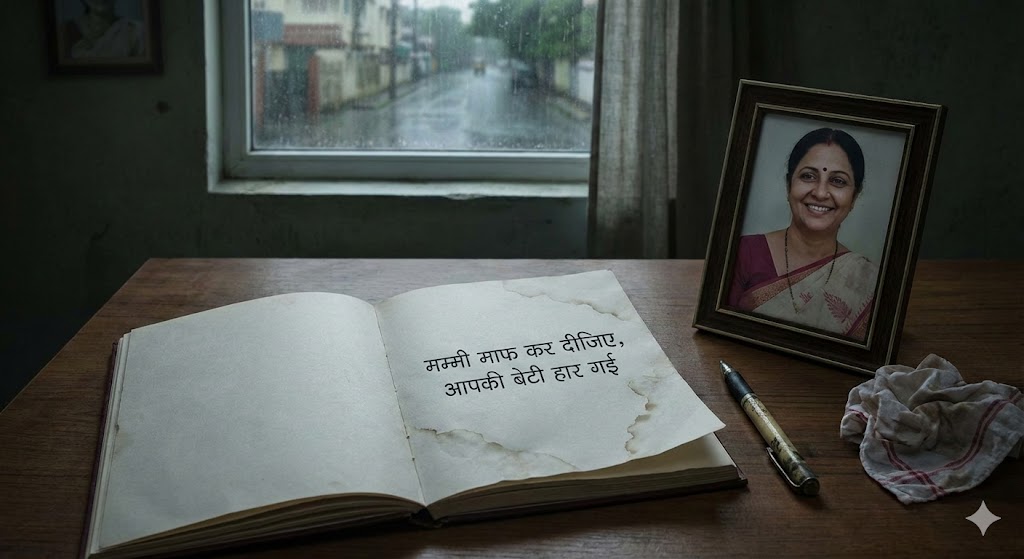 मम्मी माफ कर दीजिए,
आपकी बेटी हार गई